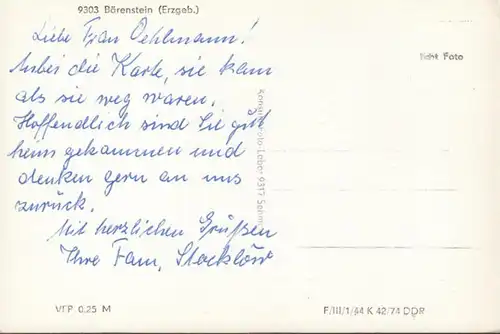 9303 Bärenstein (Erzgeb.)
Liebe Frau Oehlmann!
Anbei die Karte, sie kam
als sie weg waren.
Hoffendlich sind Sie gut
heim gekommen und
denken gern an uns
zurück.
Mit herzlichen Grüßen
Ihre Fam. Stocklöw
licht Foto
VEP 0.25 M
F/III/1/84 K 42/74 DDR